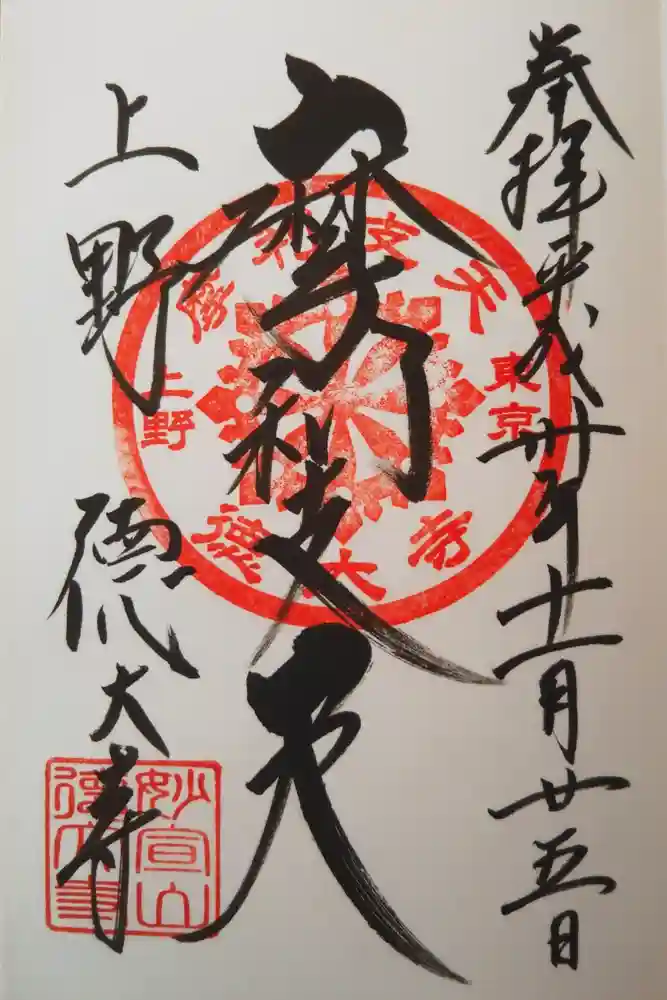 奉拝平成卅年十一月廿五日
摩利支天
上野 徳大寺
摩利支天
東京
上野
徳大寺
妙宣山
徳大寺